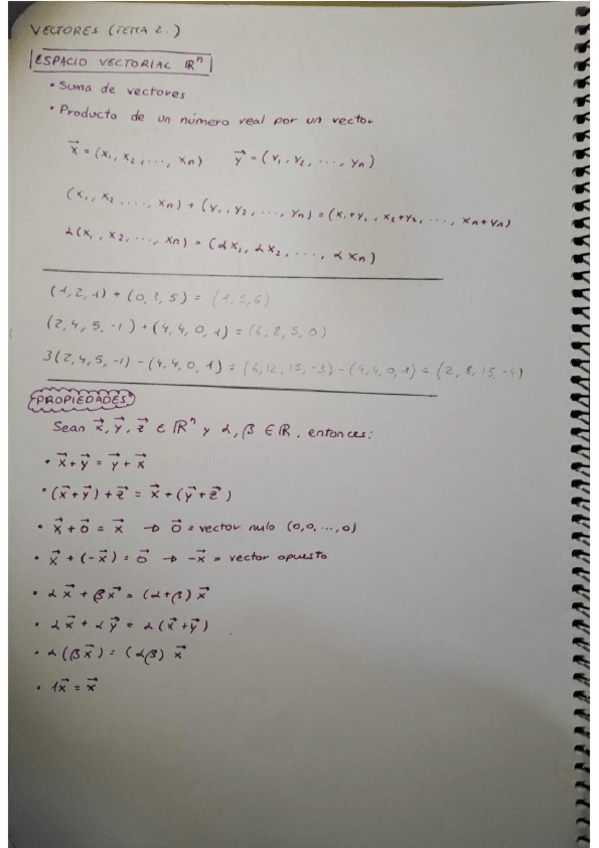 VECTORES (TEMA 2.)
ESPACIO VECTORIAL ℝⁿ
• Suma de vectores
• Producto de un número real por un vector
x⃗ = (x₁, x₂, ..., xₙ) y⃗ = (y₁, y₂, ..., yₙ)
(x₁, x₂, ..., xₙ) + (y₁, y₂, ..., yₙ) = (x₁+y₁, x₂+y₂, ..., xₙ+yₙ)
α(x₁, x₂, ..., xₙ) = (αx₁, αx₂, ..., αxₙ)
(1,2,1) + (0,3,5) = (1,5,6)
(2,4,5,-1) + (4,4,0,1) = (6,8,5,0)
3(2,4,5,-1) - (4,4,0,1) = (6,12,15,-3) - (4,4,0,1) = (2,8,15,-4)
PROPIEDADES
Sean x⃗, y⃗, z⃗ ∈ ℝⁿ y α, β ∈ ℝ, entonces:
• x⃗ + y⃗ = y⃗ + x⃗
• (x⃗ + y⃗) + z⃗ = x⃗ + (y⃗ + z⃗)
• x⃗ + 0⃗ = x⃗ → 0⃗ = vector nulo (0,0,...,0)
• x⃗ + (-x⃗) = 0⃗ → -x⃗ = vector opuesto
• αx⃗ + βx⃗ = (α+β)x⃗
• αx⃗ + αy⃗ = α(x⃗+y⃗)
• α(βx⃗) = (αβ)x⃗
• 1x⃗ = x⃗